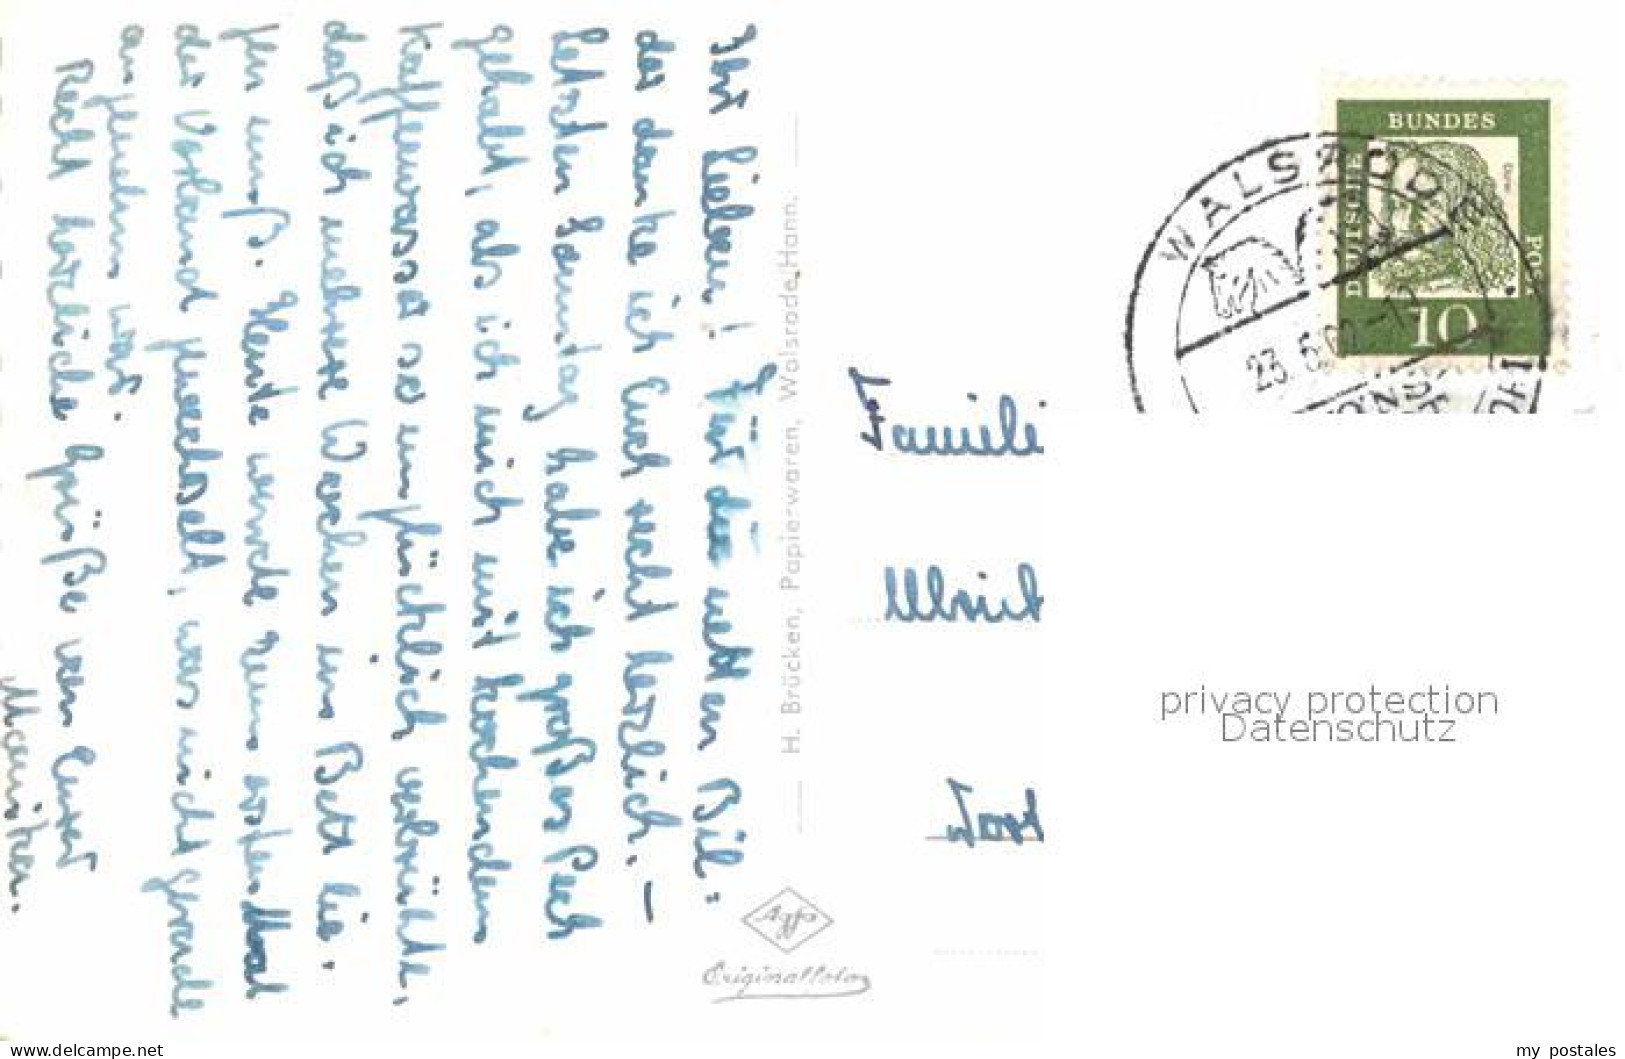 Ihr Lieben! Für die netten Bil-
der danke ich Euch recht herzlich. –
Letzten Sonntag habe ich großes Pech
gehabt, als ich mich mit kochendem
Kaffeewasser so unglücklich verbrühte,
daß ich mehrere Wochen im Bett lie-
gen muß. Heute wurde zum ersten Mal
der Verband gewechselt, was nicht gerade
angenehm war.
Recht herzliche Grüße von Eurer
H. Brücken, Papierwaren, Walsrode/Hann.
Agfa
Originalfoto
BUNDES
DEUTSCHE
POST
Dürer
10
WALSRODE
23. 6.
Famili
Ulrich
privacy protection
Datenschutz
delcampe.net
my_postales